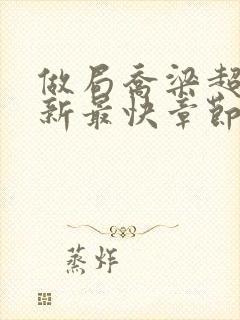 做局乔梁超
新最快章节
蒸炸